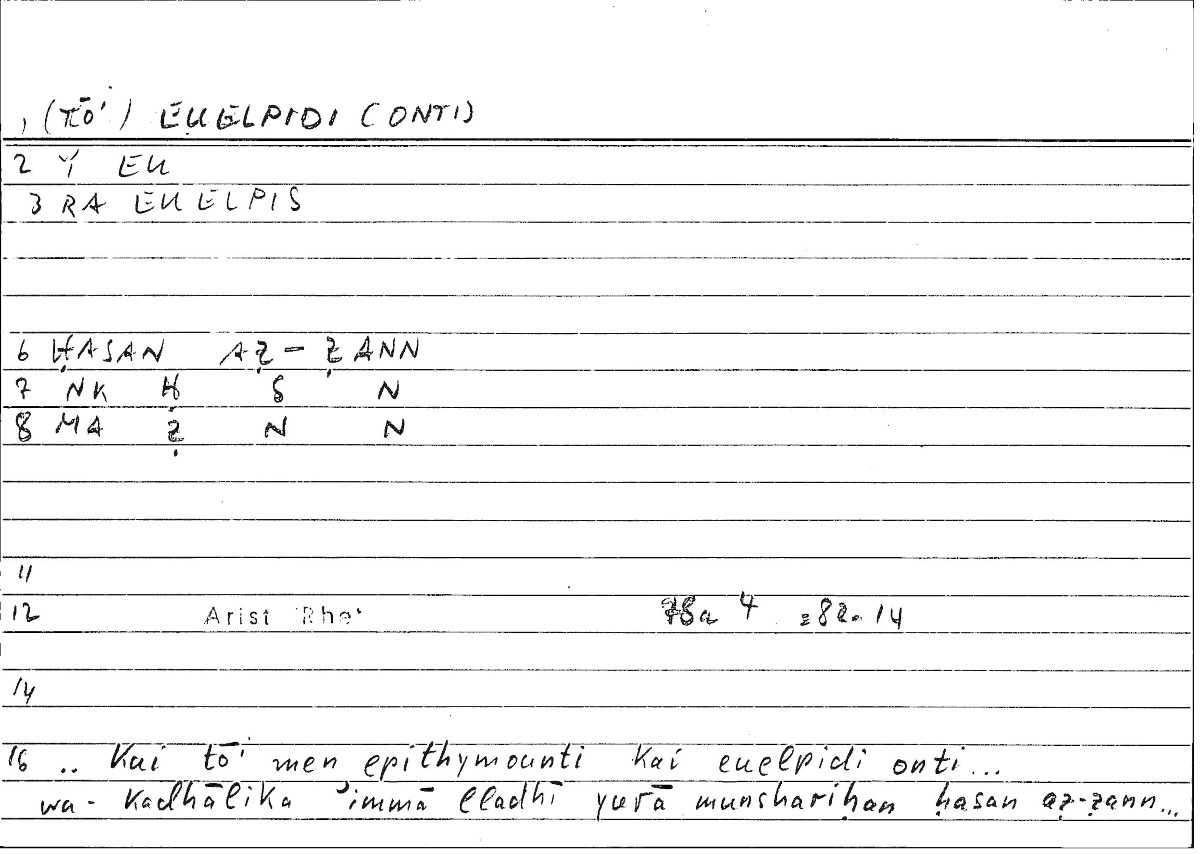 1 (TŌ') EUELPIDI (ONTI)
2 Y EU
3 RA EUELPIS
6 ḤASAN AẒ-ẒANN
7 NK Ḥ S N
8 MA Ẓ N N
11
12 Arist Rhet 78a 4 =82.14
14
16 .. Kai tō' men epithymounti kai euelpidi onti...
wa- Kadhālika 'immā lladhī yurā munshariḥan ḥasan aẓ-ẓann...